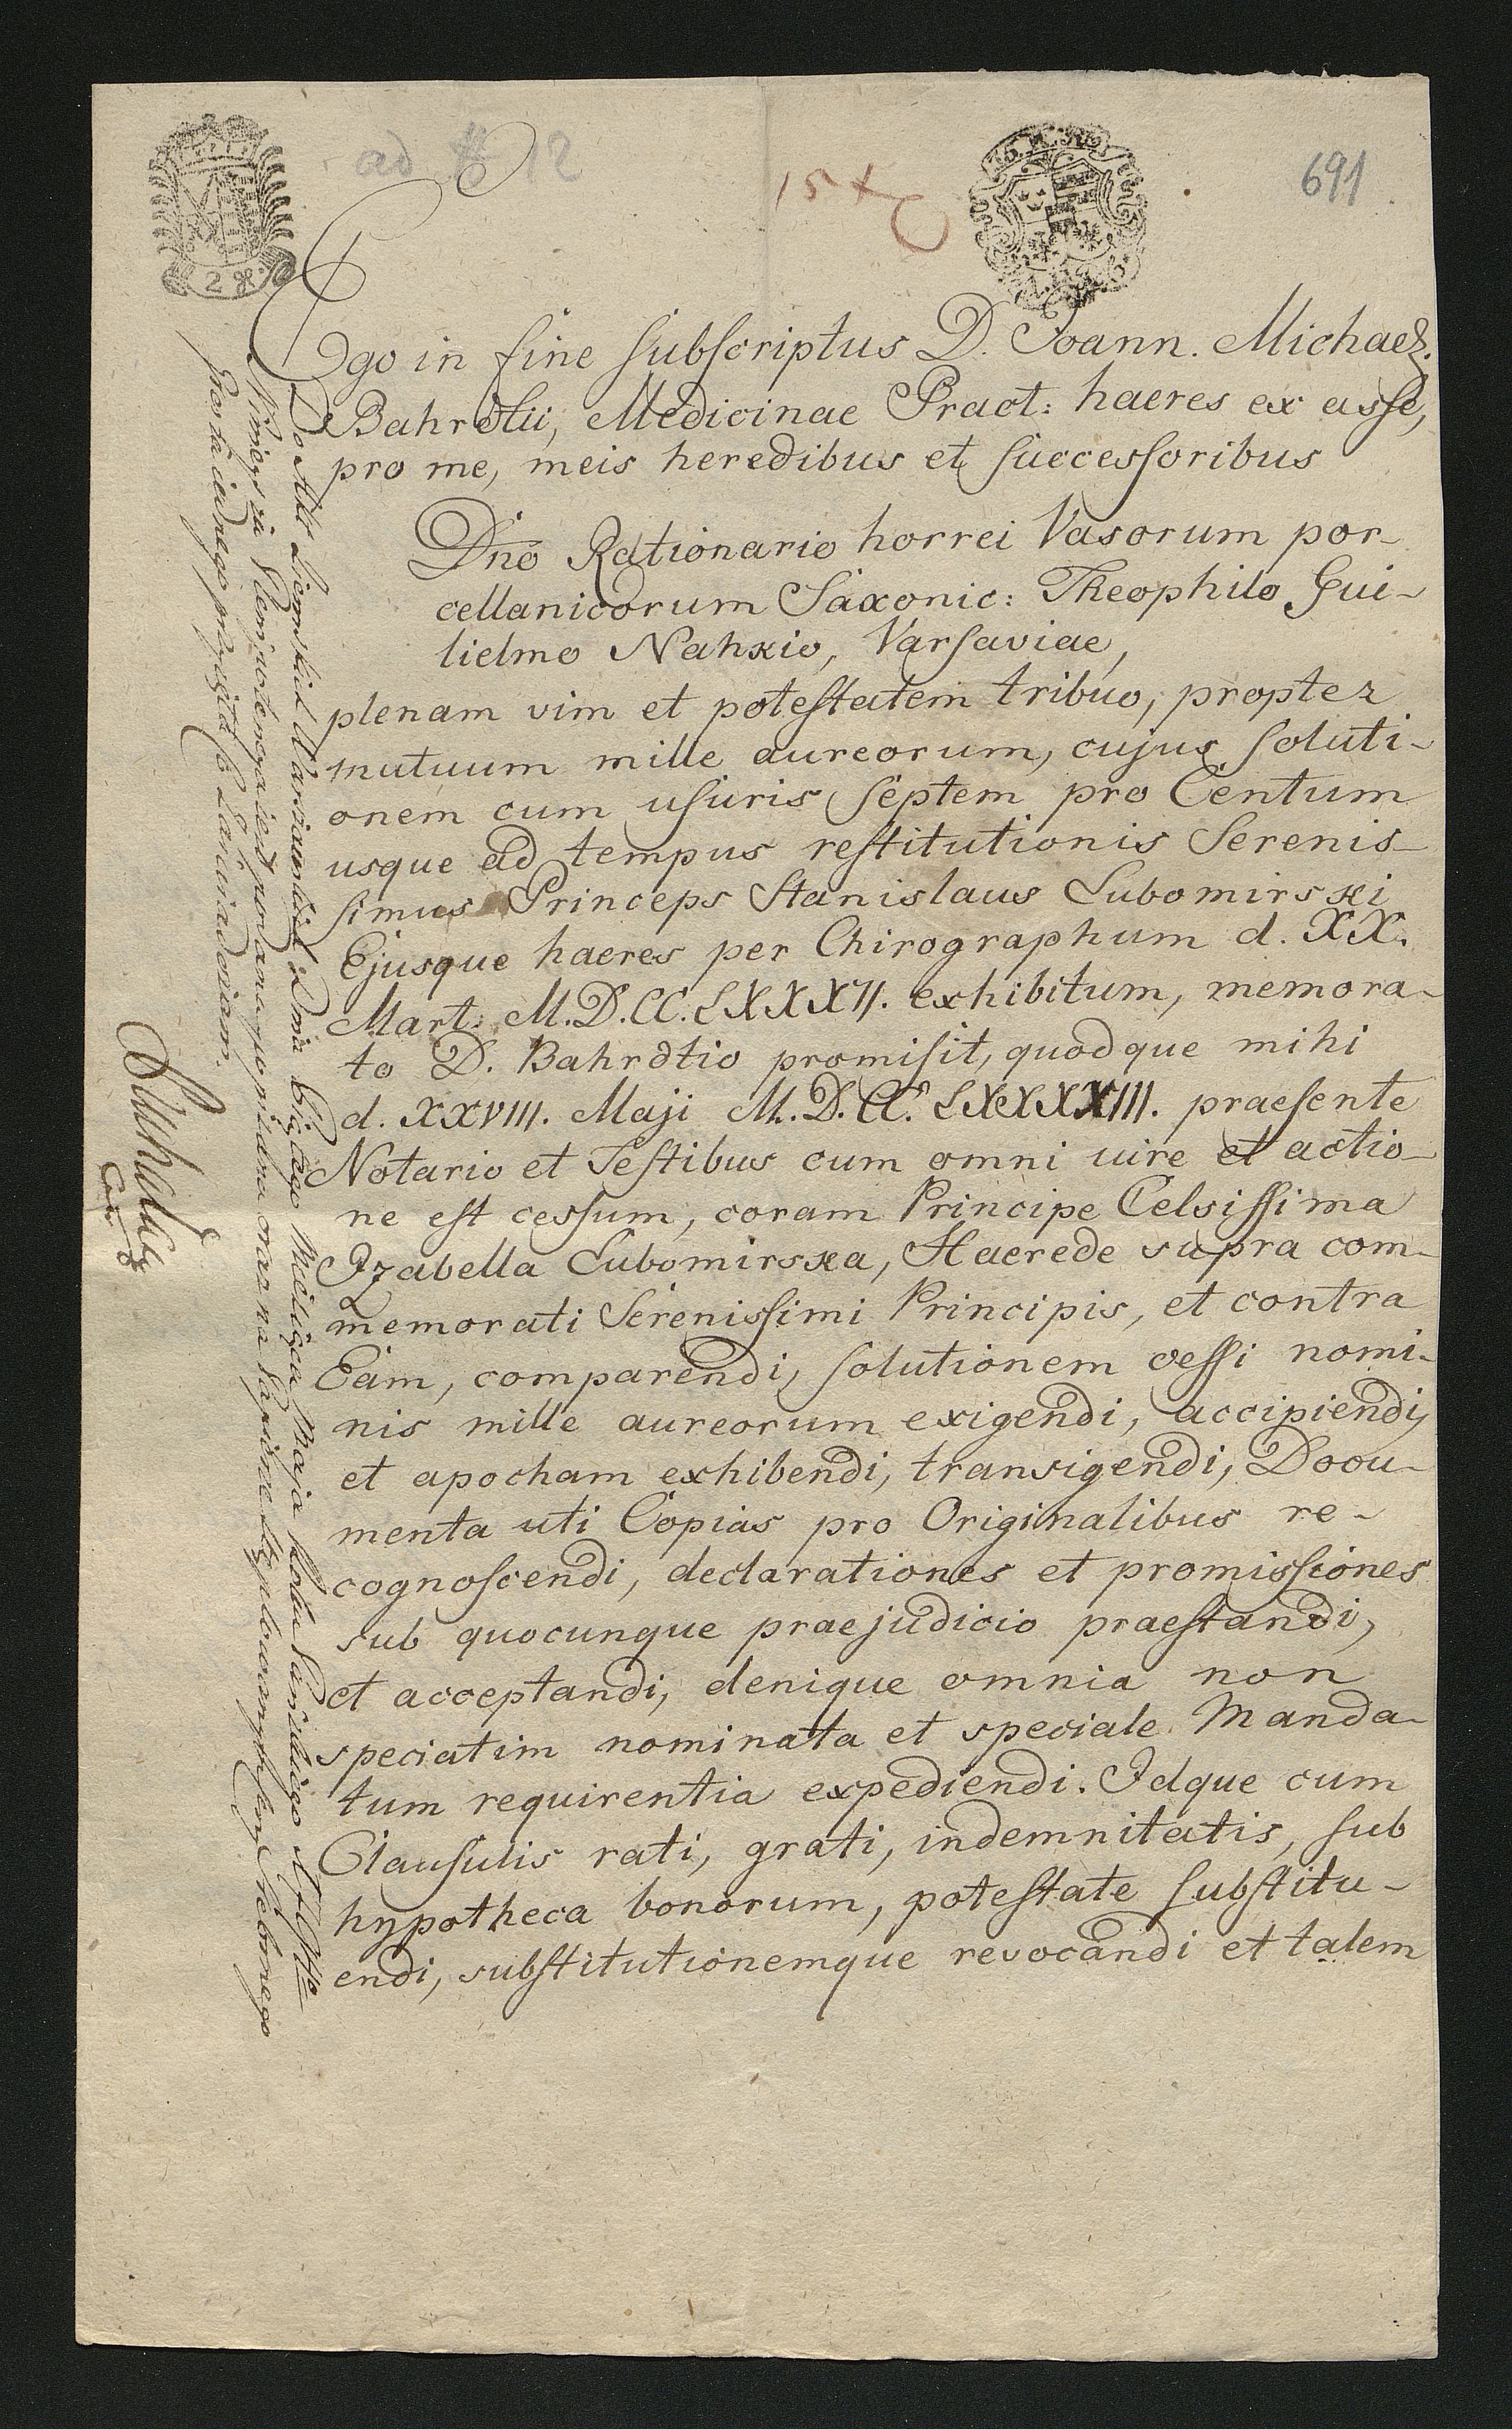 ad # 12
15 x
691
2 gr
Ego in fine subscriptus D. Joann. Michael.
Bahrdtii, Medicinae Pract: haeres ex asse,
pro me, meis heredibus et successoribus
Dno Rationario horrei Vasorum por-
cellanicorum Saxonic: Theophilo Gui-
lielmo Nahxio, Varsaviae,
plenam vim et potestatem tribuo, propter
mutuum mille aureorum, cujus soluti-
onem cum usuris septem pro Centum
usque ad tempus restitutionis Serenis-
simus Princeps Stanislaus Lubomirski
Ejusque haeres per Chirographum d. XX.
Mart. M.D.CC.LXXXII. exhibitum, memora-
to D. Bahrdtio promisit, quodque mihi
d. XXVIII. Maji M.D.CC. LXXXXIII. praesente
Notario et Testibus cum omni iure et actio-
ne est cessum, coram Principe Celsissima
Izabella Lubomirska, Haerede supra com-
memorati Serenissimi Principis, et contra
Eam, comparendi, solutionem cessi nomi-
nis mille aureorum exigendi, accipiendi,
et apocham exhibendi, transigendi, Docu-
menta uti Copias pro Originalibus re-
cognoscendi, declarationes et promissiones
sub quocunque praejudicio praestandi,
et acceptandi, denique omnia non
speciatim nominata et speciale Manda-
tum requirentia expediendi. Idque cum
Clausulis rati, grati, indemnitatis, sub
hypotheca bonorum, potestate substitu-
endi, substitutionemque revocandi et talem
Do Akt Ziemskich Warszawskich Dnia Miesiąca Maja Roku
Ninieysza Plenipotencya iest podana